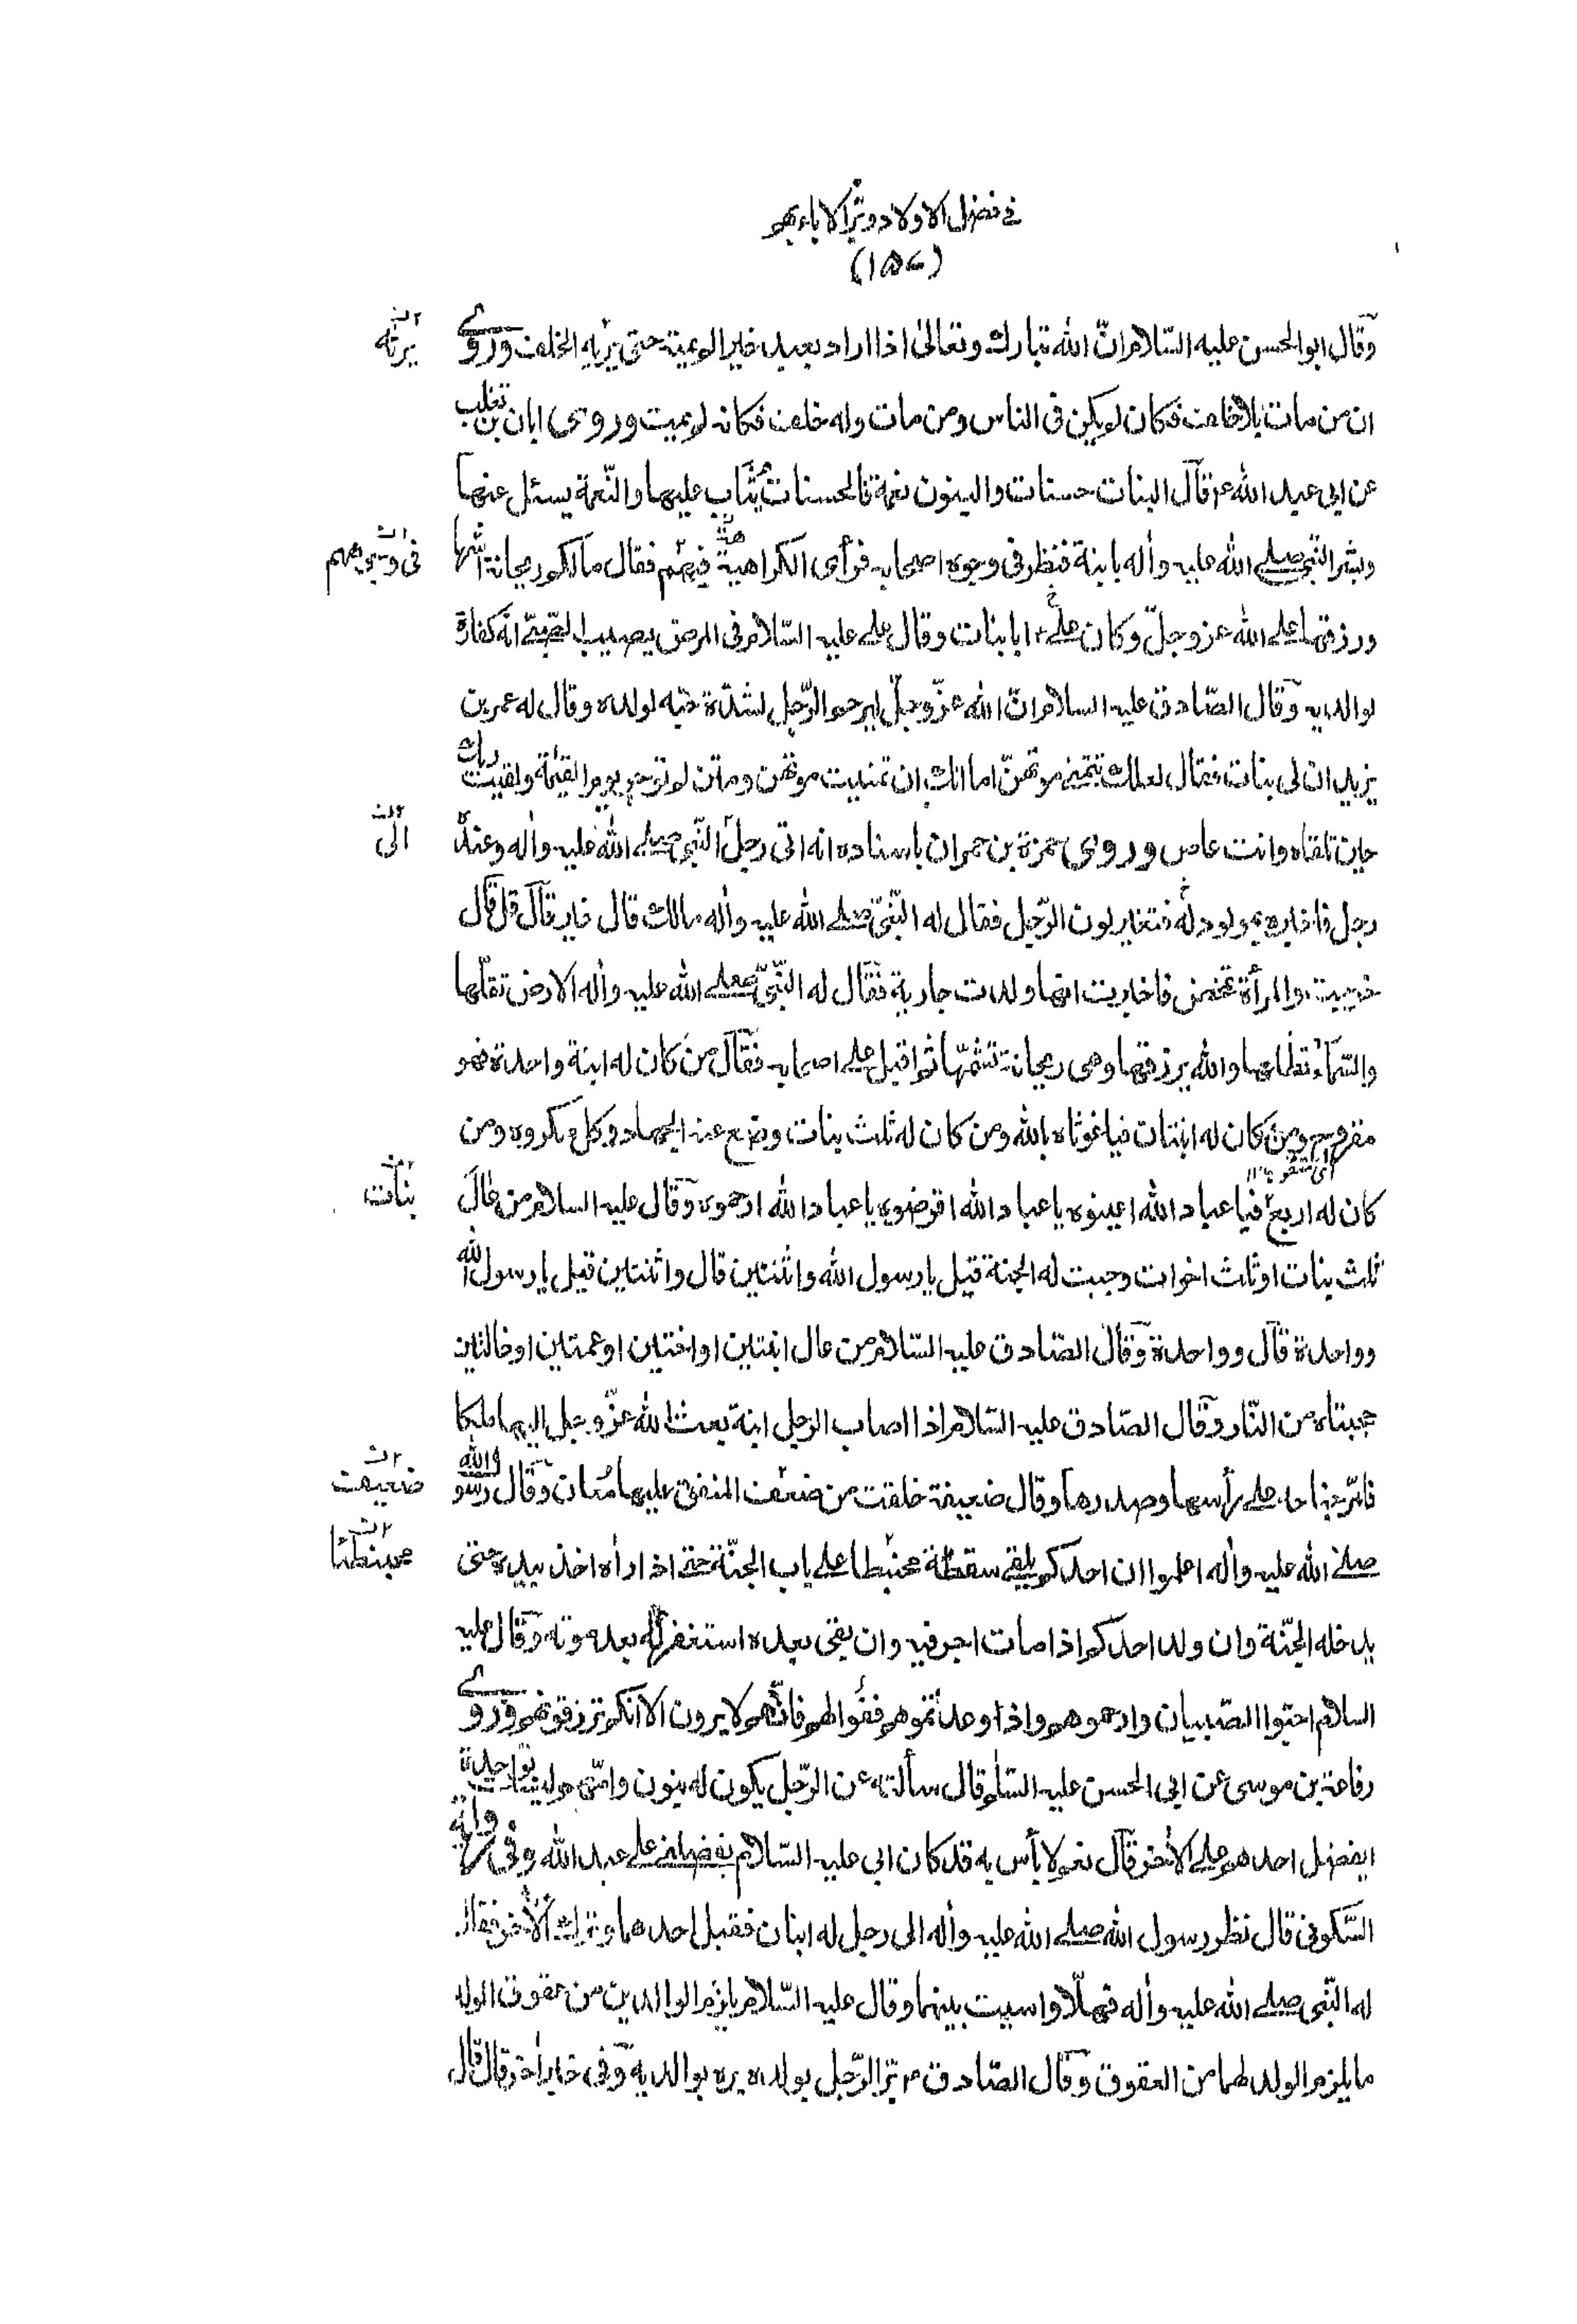 في فضل الاولاد وبرّ الاباء بهم
(١٥٧)
وقال ابو الحسن عليه السّلام انّ الله تبارك وتعالىٰ اذا اراد بعبد خيرا لم يمته حتى يريه الخلف وروى
يرثه
ان من مات بلا خلف فكان لم يكن فى الناس ومن مات وله خلف فكانه لم يمت وروى ابان بن تغلب
عن ابى عبد الله ع قال البنات حسنات والبنون نعمة فالحسنات يُثاب عليها والنّعمة يسئل عنها
وبشر النّبى صلى الله عليه واٰله بابنة فنظر فى وجوه اصحابه فرأى الكراهية فيهم فقال مالكم ريحانة اشمها
فى وجوههم
ورزقها على الله عز وجلّ وكان علىّ ابا بنات وقال على عليه السّلام فى المرض يصيب الصّبىّ انّه كفارة
لوالديه وقال الصّادق عليه السلام انّ الله عزّ وجلّ ليرحم الرّجل لشدّة حبّه لولده وقال له عمر بن
يزيد ان لى بنات فقال لعلك تتمنى موتهنّ اما انك ان تمنيت موتهن ومتن لم توجر يوم القيٰمة ولقيت ربك
حين تلقاه وانت عاص وروى حمزة بن حمران باسناده انه اتى رجل النّبى صلى الله عليه واٰله وعنده
الى
رجل فاخبره بمولود له فتغير لون الرّجل فقال له النّبىّ صلى الله عليه واٰله مالك قال خير قال قل قال
خرجت والمرأة تمخض فاخبرت انها ولدت جارية فقال له النّبىّ صلى الله عليه واٰله الارض تقلّها
والسّماء تظلها والله يرزقها وهى ريحانة تشمّها ثم اقبل على اصحابه فقال من كان له ابنة واحدة فهو
مقروح ومن كان له ابنتان فيا غوثاه بالله ومن كان له ثلث بنات وضع عنه الجهاد وكل مكروه ومن
كان له اربع فيا عباد الله اعينوه يا عباد الله اقرضوه يا عباد الله ارحموه وقال عليه السلام من عال
بنات
ثلث بنات او ثلث اخوات وجبت له الجنة قيل يا رسول الله واثنتين قال واثنتين قيل يا رسول الله
وواحدة قال وواحدة وقال الصّادق عليه السّلام من عال ابنتين او اختين او عمتين او خالتين
حجبتاه من النّار وقال الصّادق عليه السّلام اذا اصاب الرجل ابنة بعث الله عزّ وجل اليها ملكا
فامرّ جناحه على رأسها وصدرها وقال ضعيفة خلقت من ضعف المنفق عليها مُعان وقال رسول الله
ضعيف
صلى الله عليه واٰله اعلموا ان احدكم يلقى سقطه محبنطا على باب الجنّة حتى اذا رأه اخذ بيده حتى
محبنطئا
يدخله الجنّة وان ولد احدكم اذا مات اجر فيه وان بقى بعده استغفر له بعد موته وقال عليه
السلام احبّوا الصّبيان وارحموهم واذا وعدتموهم ففوا لهم فانّهم لا يرون الا انكم ترزقونهم وروى
رفاعة بن موسى عن ابى الحسن عليه السّلام قال سألته عن الرّجل يكون له بنون وامّهم ليست بواحدة
ايفضل احدهم على الاٰخر قال نعم لا بأس به قد كان ابى عليه السّلام يفضلنى على عبد الله وفى رواية
السّكونى قال نظر رسول الله صلى الله عليه واٰله الى رجل له ابنان فقبل احدهما وترك الاٰخر فقال
له النّبى صلى الله عليه واٰله فهلّا واسيت بينهما وقال عليه السّلام يلزم الوالدين من عقوق الولد
ما يلزم الولد لهما من العقوق وقال الصّادق ع برّ الرّجل بولده بره بوالديه وفى خبر اٰخر قال قال